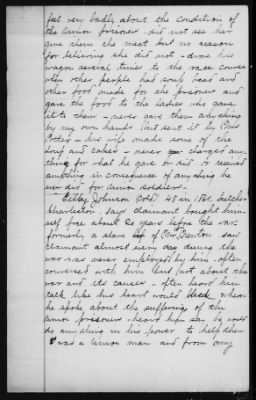 feel very badly about the condition of
the Union prisoners - did not see her
give them the meat but no reason
for believing she did not - drove his
wagon several times to the race course
when other people had soup bread and
other food made for the prisoners and
gave the food to the ladies who gave
it to them - never gave them anything
by my own hands but sent it by
Potter - his wife made some of the
soup and cakes - never charged any-
thing for what he gave or did or received
anything in consequence of anything he
ever did for Union soldiers.
Johnson Cold 48 in
Charleston, says claimant bought him-
self free about 20 years before the war
formerly a slave of Trenton - saw
claimant almost every day during the
war - was never employed by him - often
conversed with him about the
war and its causes - often heard him
talk like his heart would when
he spoke about the suffering of the
Union prisoners - heard him say he would
do anything in his power to help them
was a Union man and from my